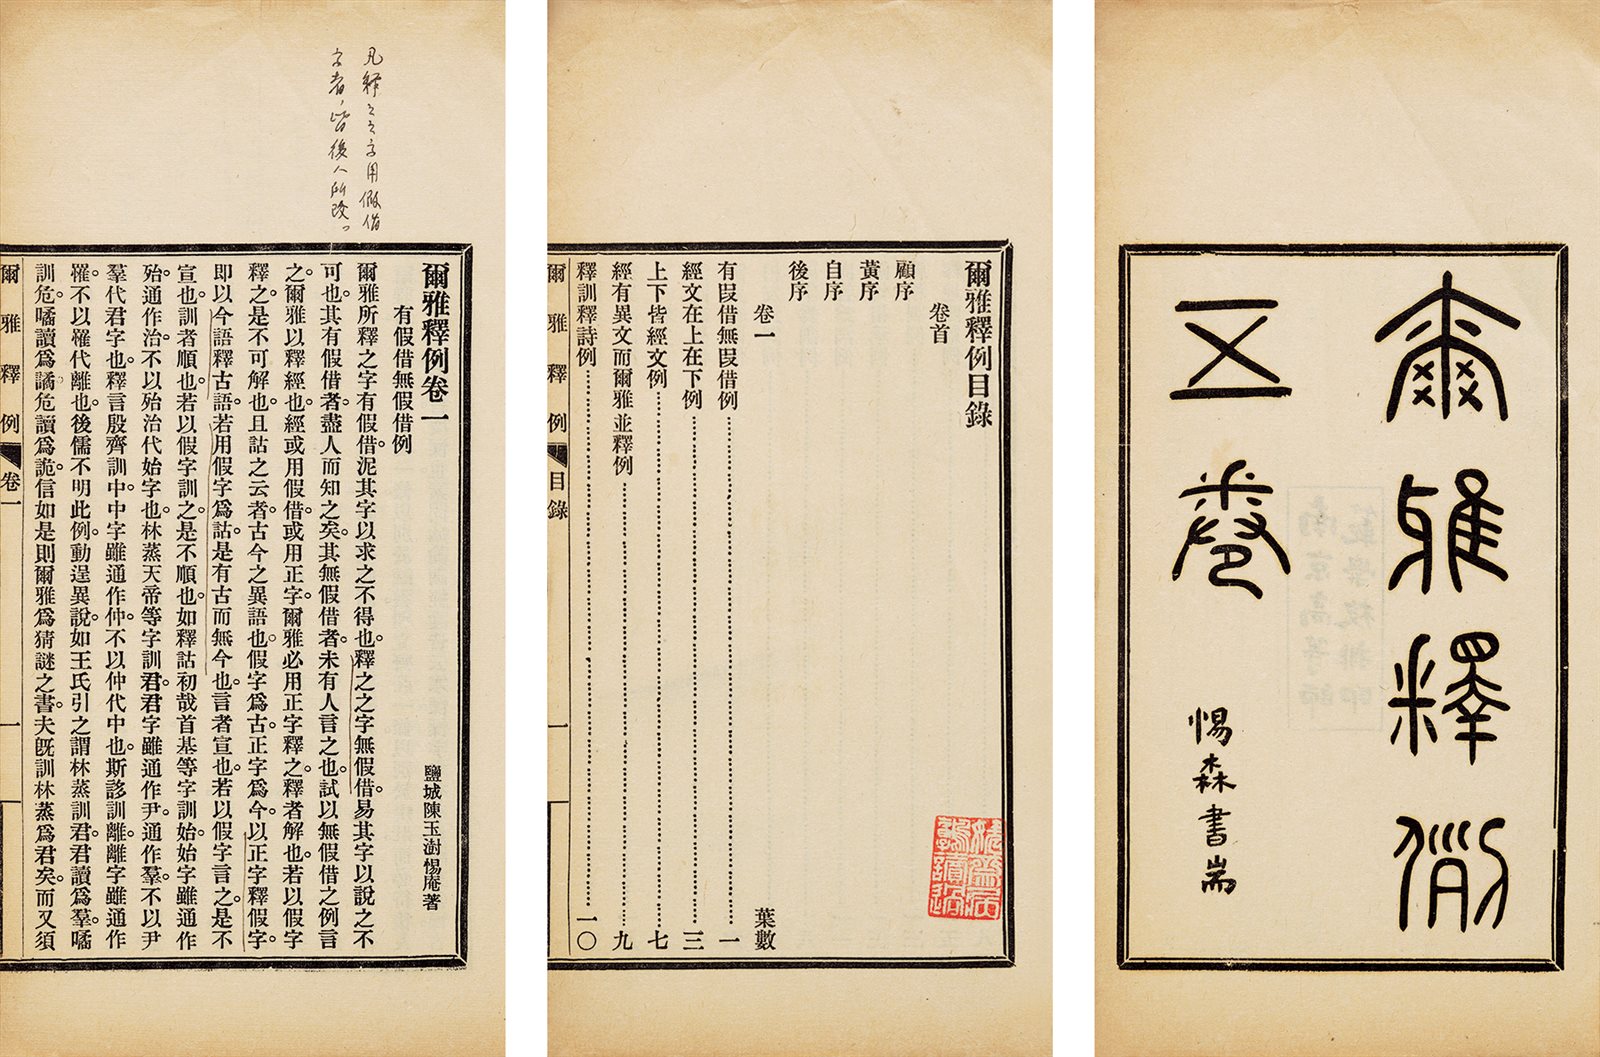 爾雅釋例
五卷
惕森書耑
南京高等師
範學校排印
爾雅釋例目錄
卷首
顧序
黃序
自序
後序
卷一
葉數
有叚借無叚借例 一
經文在上在下例 三
上下皆經文例 七
經有異文而爾雅並釋例 九
釋訓釋詩例 一〇
爾雅釋例 目錄 一
凡釋之之字用假借
字者，皆後人所改。
爾雅釋例卷一
鹽城陳玉澍惕庵著
有假借無假借例
爾雅所釋之字有假借。泥其字以求之不得也。釋之之字無假借。易其字以說之不
可也。其有假借者。盡人而知之矣。其無假借者。未有人言之也。試以無假借之例言
之。爾雅以釋經也。經或用假借。或用正字。爾雅必用正字釋之。釋者解也。若以假字
釋之。是不可解也。且詁之云者。古今之異語也。假字爲古。正字爲今。以正字釋假字。
即以今語釋古語。若用假字爲詁。是有古而無今也。言者宣也。若以假字言之。是不
宣也。訓者順也。若以假字訓之。是不順也。如釋詁初哉首基等字訓始。始字雖通作
殆。殆通作治。不以殆治代始字也。林蒸天帝等字訓君。君字雖通作尹。通作羣。不以尹
羣代君字也。釋言殷齊訓中。中字雖通作仲。不以仲代中也。斯誃訓離。離字雖通作
罹。不以罹代離也。後儒不明此例。動逞異說。如王氏引之謂林蒸訓君。君讀爲羣。噊
訓危。噊讀爲譎。危讀爲詭。信如是。則爾雅爲猜謎之書。夫旣訓林蒸爲君矣。而又須
爾雅釋例 卷一 一